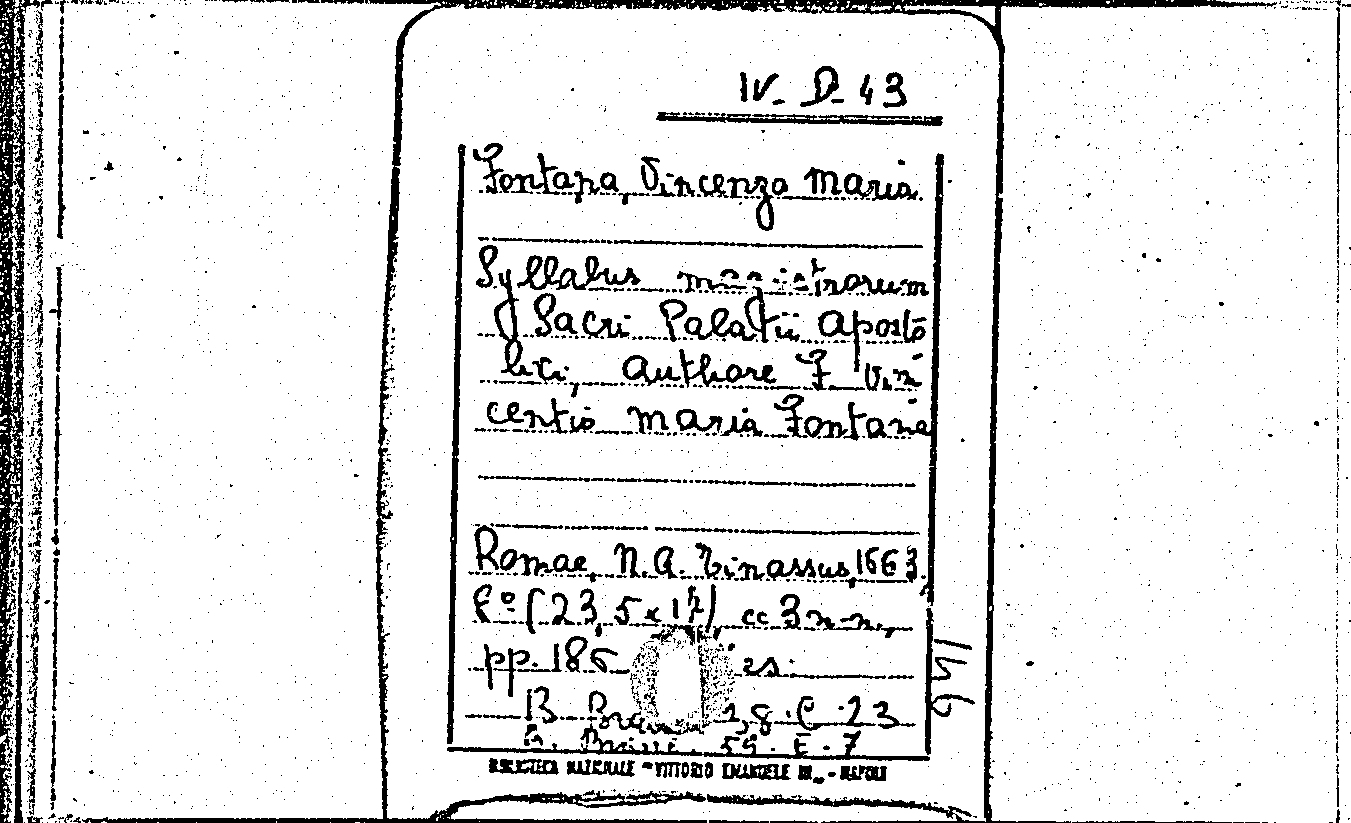 IV. D. 43
Fontana, Vincenzo Maria
Syllabus magistrorum
Sacri Palatii Aposto
lici, Authore F. Vin
centio Maria Fontana
Romae, N. A. Tinassus, 1663.
8º (23,5 x 17), cc 3 n.n.,
pp. 186
B. 28. C. 23
B. 59. E. 7
BIBLIOTECA NAZIONALE "VITTORIO EMANUELE III" - NAPOLI